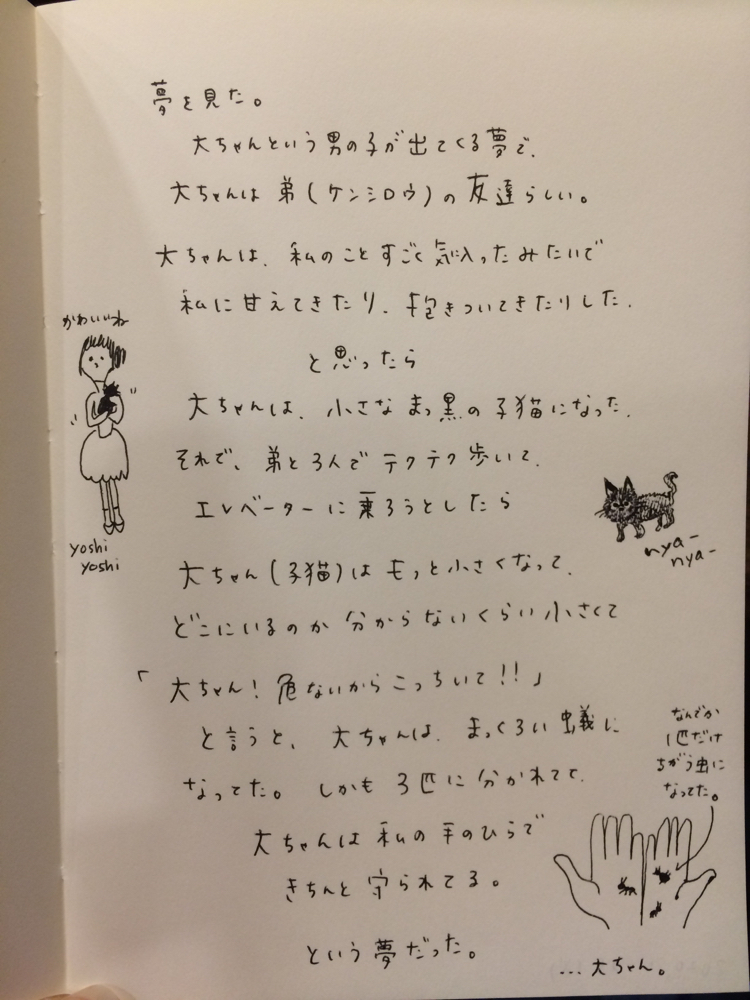 夢を見た。
大ちゃんという男の子が出てくる夢で、
大ちゃんは弟(ケンシロウ)の友達らしい。
大ちゃんは、私のことすごく気に入ったみたいで
私に甘えてきたり、抱きついてきたりした、
と思ったら
大ちゃんは、小さなまっ黒の子猫になった、
それで、弟と3人でテクテク歩いて、
エレベーターに乗ろうとしたら
大ちゃん(子猫)はもっと小さくなって、
どこにいるのか分からないくらい小さくて
「大ちゃん!危ないからこっちいて!!」
と言うと、大ちゃんは、まっくろい蟻に
なってた。しかも3匹に分かれてて、
大ちゃんは私の手のひらで
きちんと守られてる。
という夢だった。
かわいいね
yoshi
yoshi
nya-
nya-
なんでか
1匹だけ
ちがう虫に
なってた。
...大ちゃん。